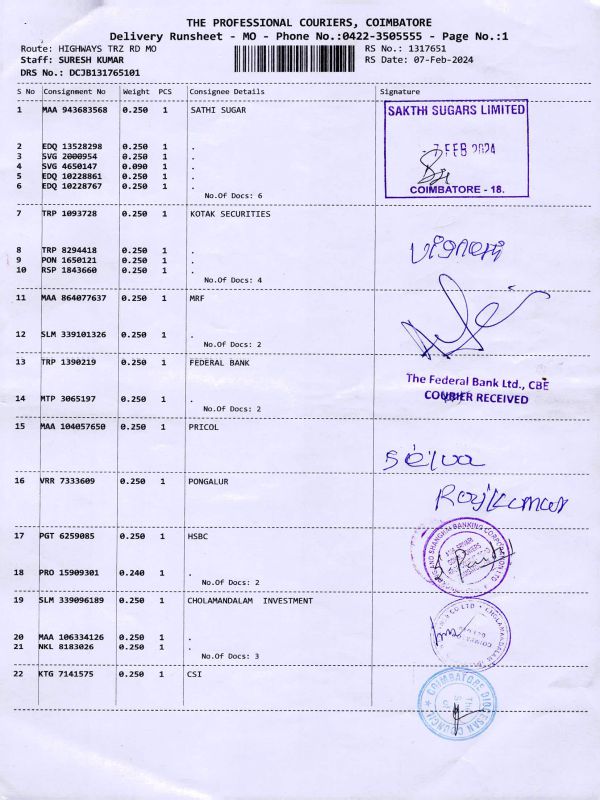 THE PROFESSIONAL COURIERS, COIMBATORE
Delivery Runsheet - MO - Phone No.:0422-3505555 - Page No.:1
Route: HIGHWAYS TRZ RD MO RS No.: 1317651
Staff: SURESH KUMAR RS Date: 07-Feb-2024
DRS No.: DCJB131765101
S No Consignment No Weight PCS Consignee Details Signature
1 MAA 943683568 0.250 1 SATHI SUGAR
SAKTHI SUGARS LIMITED
7 FEB 2024
COIMBATORE - 18.
2 EDQ 13528298 0.250 1 .
3 SVG 2000954 0.250 1 .
4 SVG 4650147 0.090 1 .
5 EDQ 10228861 0.250 1 .
6 EDQ 10228767 0.250 1 .
No.Of Docs: 6
7 TRP 1093728 0.250 1 KOTAK SECURITIES
8 TRP 8294418 0.250 1 .
9 PON 1650121 0.250 1 .
10 RSP 1843660 0.250 1 .
No.Of Docs: 4
11 MAA 864077637 0.250 1 MRF
12 SLM 339101326 0.250 1 .
No.Of Docs: 2
13 TRP 1390219 0.250 1 FEDERAL BANK
The Federal Bank Ltd., CBE
COURIER RECEIVED
14 MTP 3065197 0.250 1 .
No.Of Docs: 2
15 MAA 104057650 0.250 1 PRICOL
Selva
16 VRR 7333609 0.250 1 PONGALUR
Rajkumar
17 PGT 6259085 0.250 1 HSBC
18 PRO 15909301 0.240 1 .
No.Of Docs: 2
19 SLM 339096189 0.250 1 CHOLAMANDALAM INVESTMENT
20 MAA 106334126 0.250 1 .
21 NKL 8183026 0.250 1 .
No.Of Docs: 3
22 KTG 7141575 0.250 1 CSI
COIMBATORE DIOCESAN COUNCIL